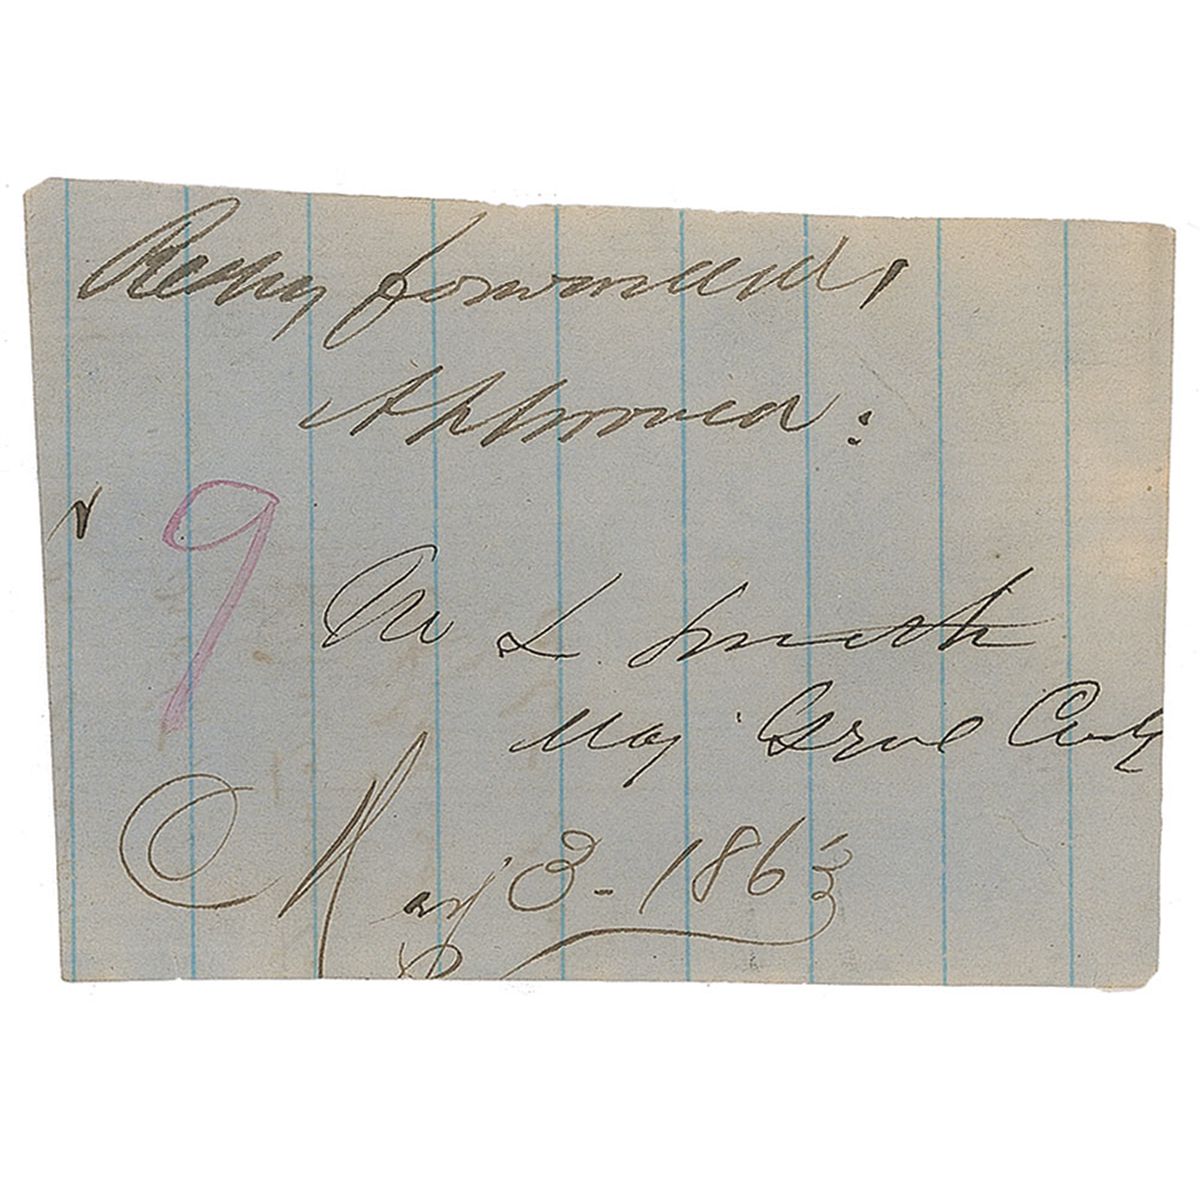 Respy forwarded,
Approved:
9
M L. Smith
Maj Genl Comdg
May 3 - 1863